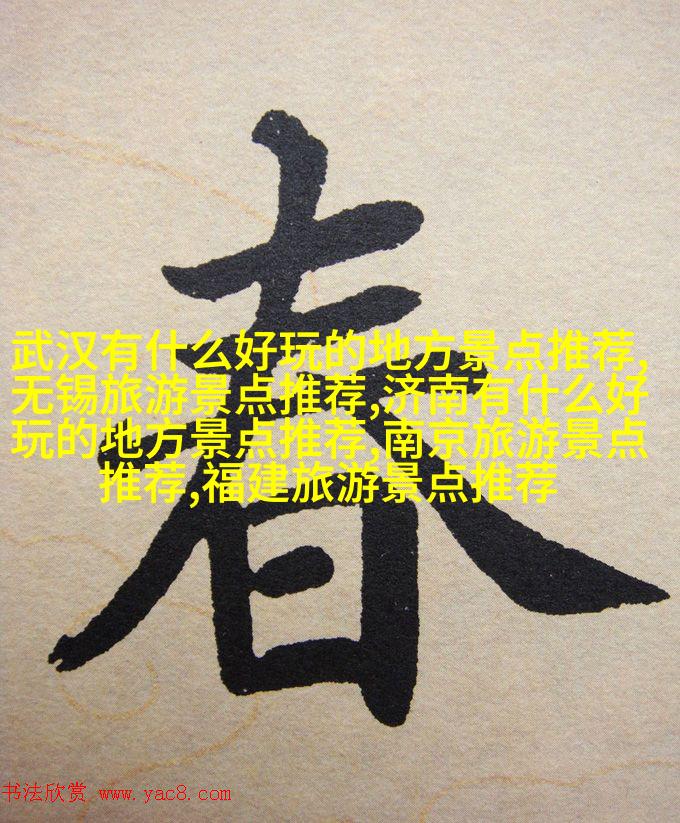 春
武汉有什么好玩的地方景点推荐,
无锡旅游景点推荐,济南有什么好
玩的地方景点推荐,南京旅游景点
推荐,福建旅游景点推荐
书法欣赏 www.yac8.com